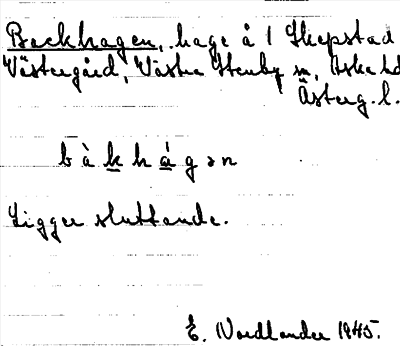 Backhagen, hage å 1 Skepstad
Västergård, Västra Stenby sn, Aska hd
Österg. l.
b à k h á g ə n
Ligger sluttande.
E. Nordlander 1945.